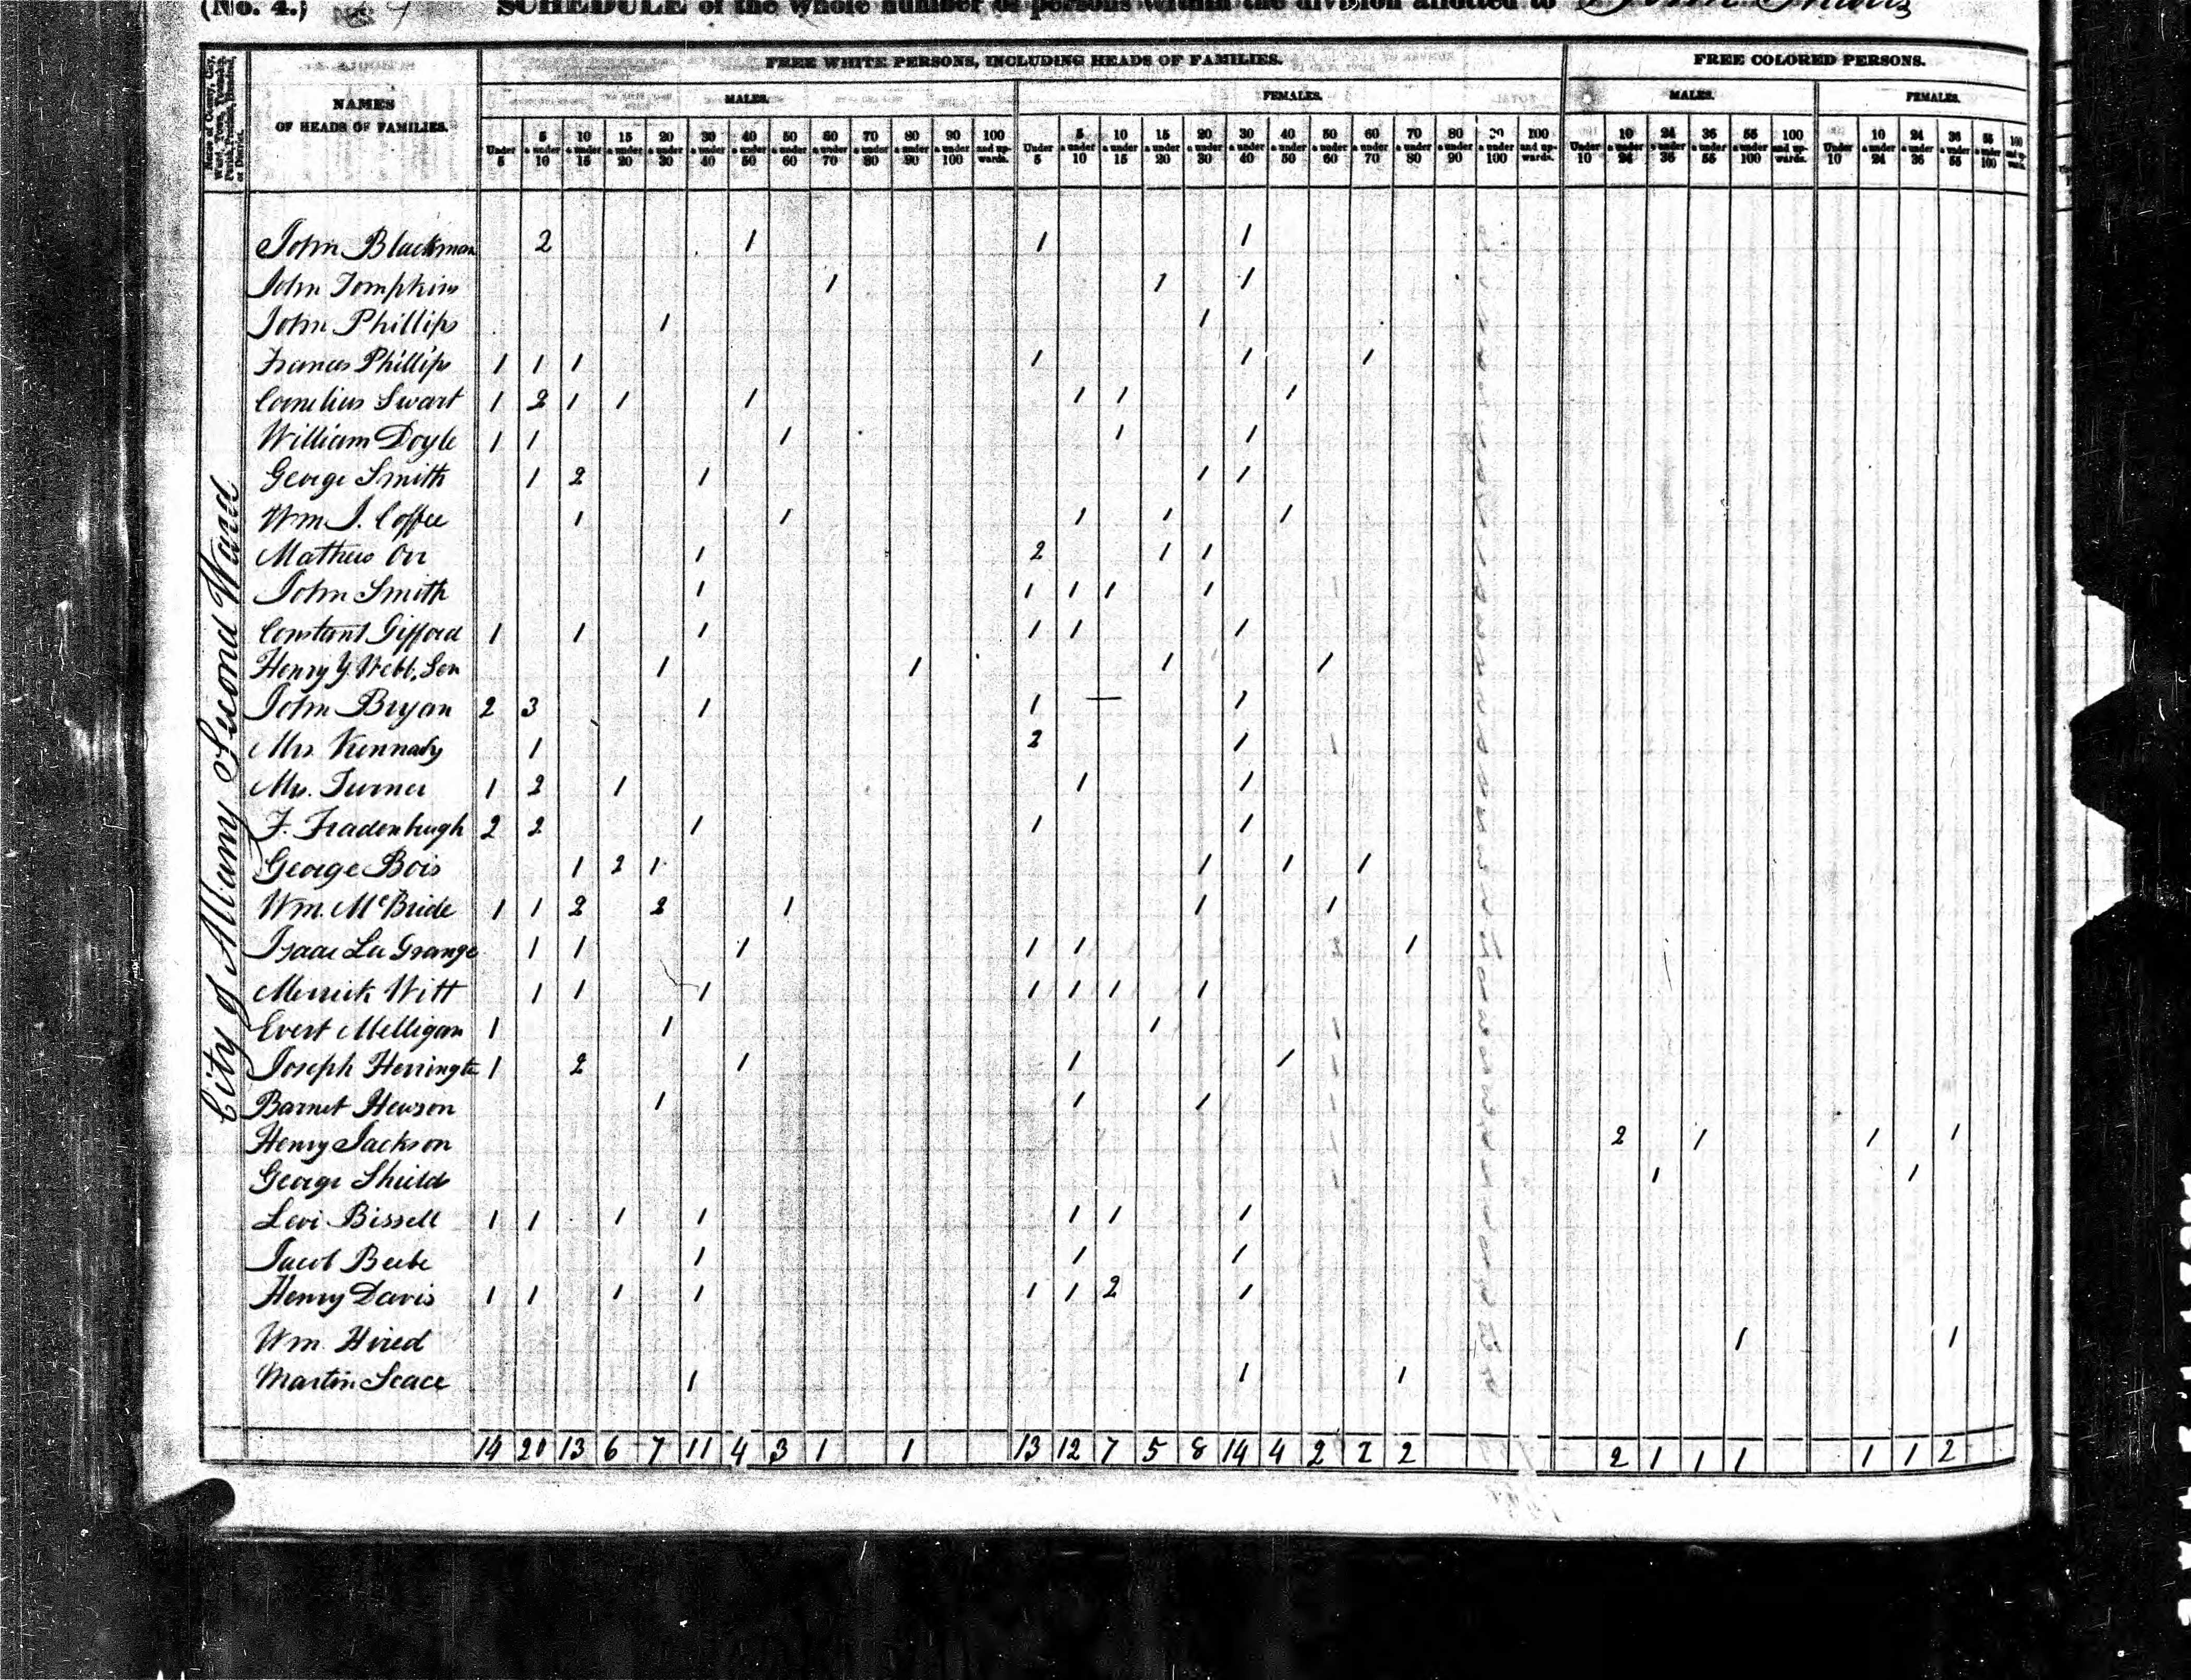 (No. 4.) SCHEDULE of the whole number of persons within the division allotted to John
FREE WHITE PERSONS, INCLUDING HEADS OF FAMILIES. FREE COLORED PERSONS.
NAMES OF HEADS OF FAMILIES. MALES. FEMALES. MALES. FEMALES.
Under 5 5 & under 10 10 & under 15 15 & under 20 20 & under 30 30 & under 40 40 & under 50 50 & under 60 60 & under 70 70 & under 80 80 & under 90 90 & under 100 100 and upwards. Under 5 5 & under 10 10 & under 15 15 & under 20 20 & under 30 30 & under 40 40 & under 50 50 & under 60 60 & under 70 70 & under 80 80 & under 90 90 & under 100 100 and upwards. Under 10 10 & under 24 24 & under 36 36 & under 55 55 & under 100 100 and upwards. Under 10 10 & under 24 24 & under 36 36 & under 55 55 & under 100 100 and upwards.
City of Albany Second Ward
John Blackman 2 1 1 1
John Tompkins 1 1 1
John Phillips 1 1
Frances Phillips 1 1 1 1 1 1
Cornelius Swart 1 2 1 1 1 1 1 1
William Doyle 1 1 1 1 1
George Smith 1 2 1 1 1
Wm J. Coffee 1 1 1 1 1
Mathew Orr 1 2 1 1
John Smith 1 1 1 1 1
Constant Gifford 1 1 1 1 1 1
Henry Y. Webb, Sen 1 1 1 1
John Bryan 2 3 1 1 — 1
Mrs. Kennady 1 2 1
Mrs. Turner 1 2 1 1 1
F. Fradenburgh 2 2 1 1 1
George Bois 1 2 1 1 1 1
Wm. McBride 1 1 2 2 1 1 1
Isaac La Grange 1 1 1 1 1 1
Merrick Witt 1 1 1 1 1 1 1
Evert Melligan 1 1 1
Joseph Herrington 1 2 1 1 1
Barnet Hewson 1 1 1
Henry Jackson 2 1 1 1
George Shields 1 1
Levi Bissell 1 1 1 1 1 1 1
Jacob Beebe 1 1 1
Henry Davis 1 1 1 1 1 1 2 1
Wm. Hired 1 1
Martin Scace 1 1 1
14 20 13 6 7 11 4 3 1 1 13 12 7 5 8 14 4 2 2 2 2 1 1 1 1 1 2